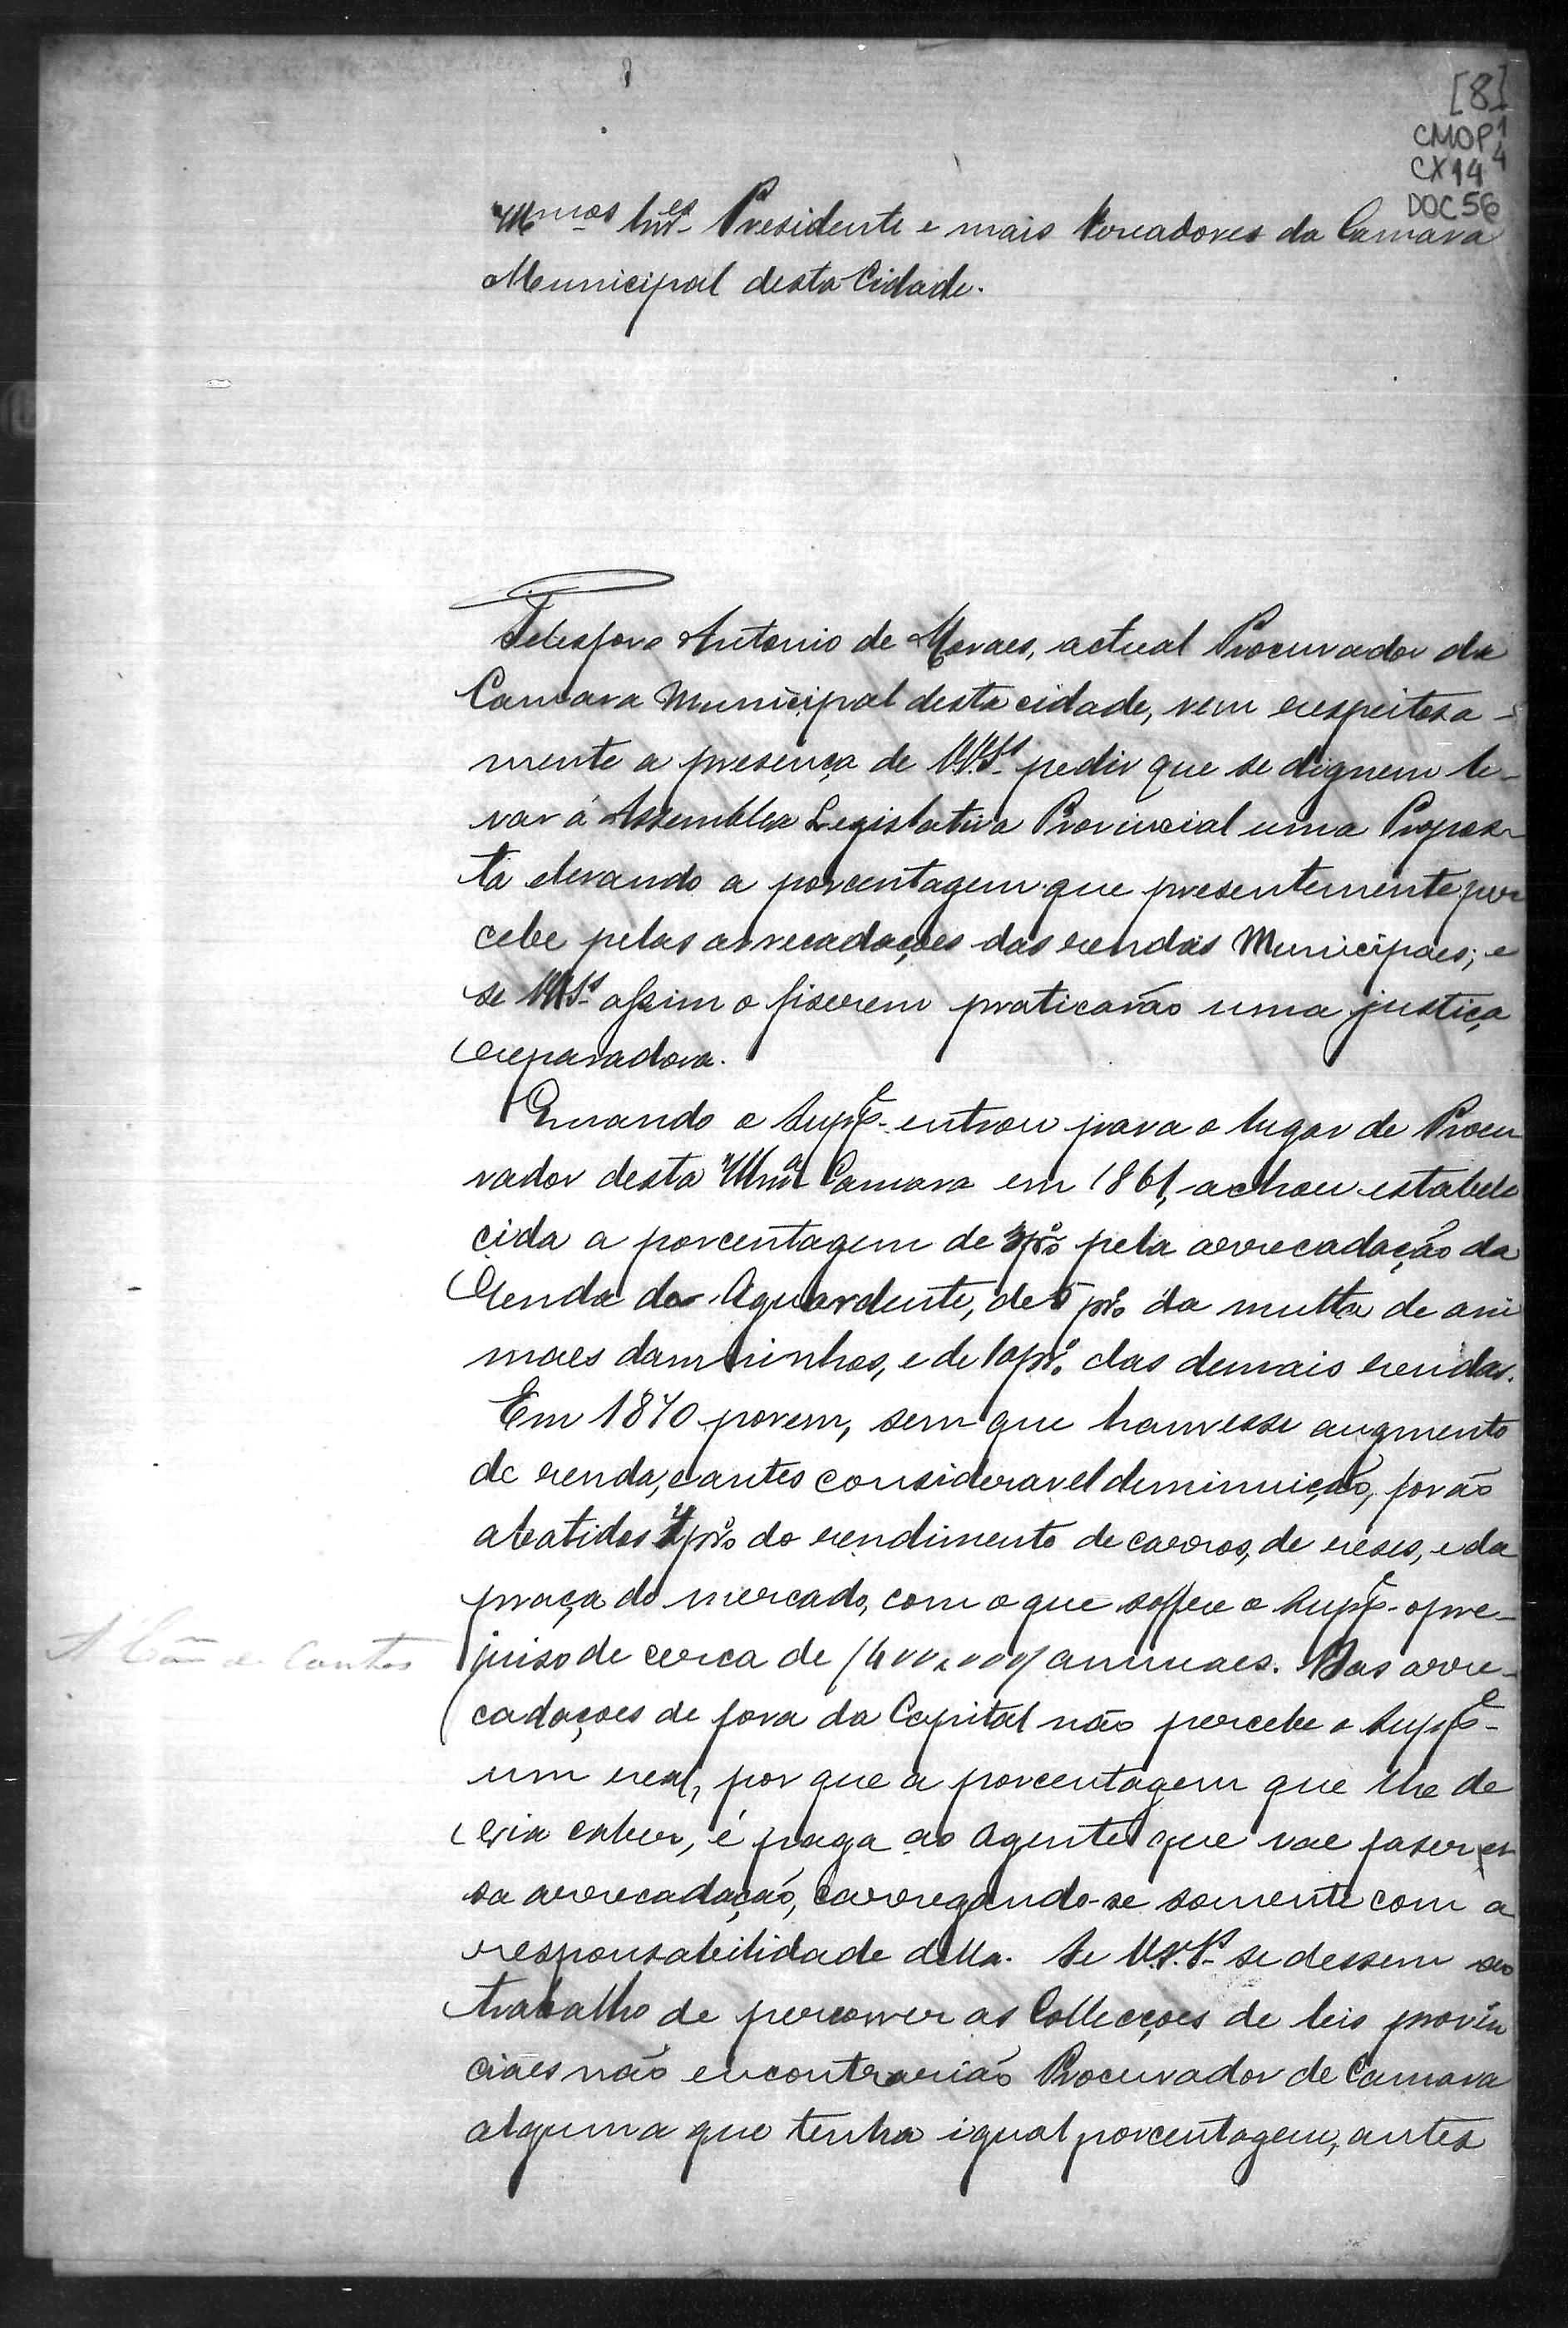 [8]
CMOP 1
CX 14 4
DOC 56
Illmos Snres Presidente e mais Vereadores da Camara
Municipal desta Cidade.
Telesforo Antonio de Moraes, actual Procurador da
Camara Municipal desta cidade, vem respeitosa-
mente a presença de VV.Sas pedir que se dignem le-
var á Assemblea Legislativa Provincial uma Propos-
ta elevando a porcentagem que presentemente per
cebe pelas arrecadações das rendas Municipaes; e
se VVSas assim o fiserem praticarão uma justiça
reparadora.
Quando o Suppe entrou para o lugar de Procu
rador desta Illma Camara em 1861, achou estabele
cida a porcentagem de 3 pro pela arrecadação da
renda da Aguardente, de 5 pro da multa de ani
maes damninhos, e de 10 pro das demais rendas.
Em 1870 porem, sem que houvesse augmento
de renda, e antes consideravel deminuição, forão
abatidos pro do rendimento de carros, de reses, e da
praça do mercado, com o que soffre o Suppe o pre-
juiso de cerca de annuaes. Das arre-
cadações de fora da Capital não percebe o Suppe
um real, por que a porcentagem que lhe de
veria caber, é paga ao Agente que vae faser es
sa arrecadação, carregando-se somente com a
responsabilidade della. Se V.V.Sas se dessem ao
trabalho de percorrer as Collecções de leis provin
ciaes não encontrarião Procurador de Camara
alguma que tenha igual porcentagem, antes
A Cam de Contas